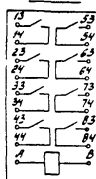 13 53
14 54
23 63
24 64
33 73
34 74
43 83
44 84
A B